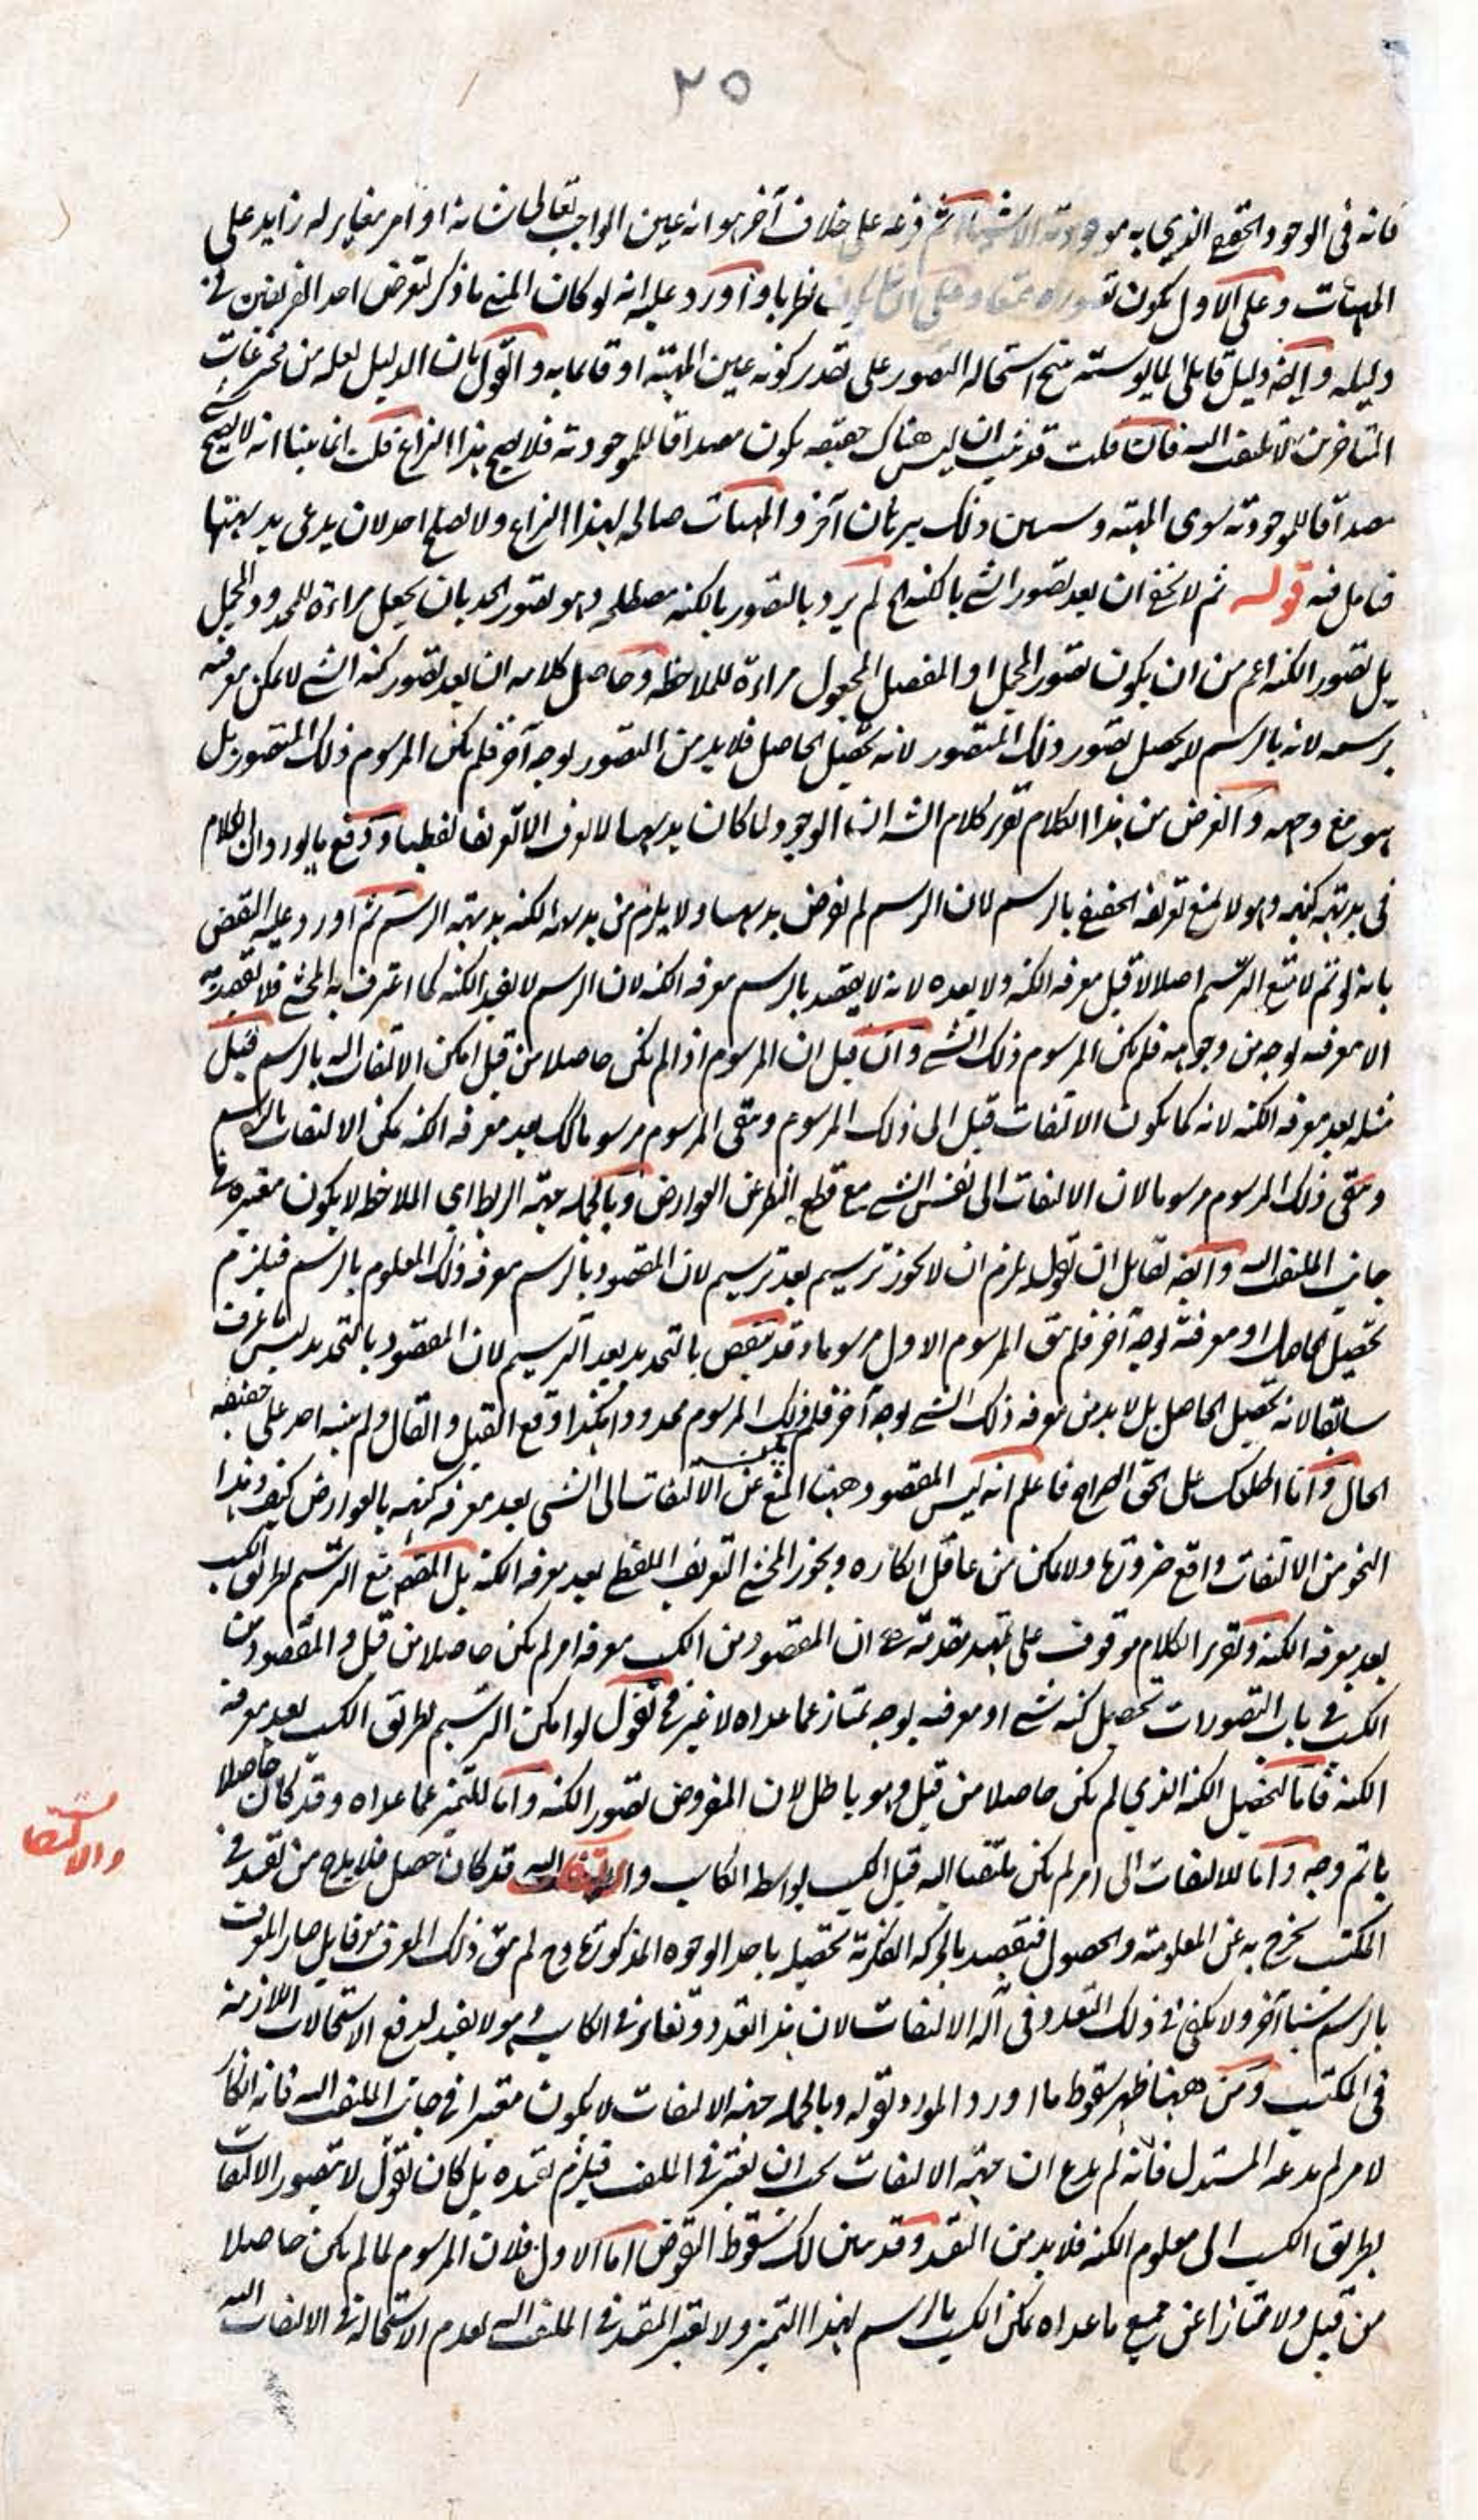 ٢٥
فانه فى الوجود الحقيقي الذي به موجودية الاشياء ثم فرعه على خلاف آخر هو انه عين الواجب تعالى شانه او امر مغاير له زايد على
المهيات وعلى الاول يكون تصوره ممتنعا وعلى الثاني يكون نظريا واورد عليه انه لو كان المبني ما ذكر لتعرض احد الفريقين في
دليله وايضا دليل قابلي استحالة التصور على تقدير كونه عين المهية او قايما به والقول بان الدليل لعله من مخترعات
المتاخرين لا يلتفت اليه فان قلت قد ان ليس هناك حقيقة يكون مصداقا للموجودية فلا يصح هذا النزاع قلت انما بينا انه لا يصح
مصداقا للموجودية سوى المهية وسيبين ذلك ببرهان آخر والمهيات صالحة لهذا النزاع ولا يصلح احد لان يدعى بديهيتها
فتامل فيه قوله ثم لا يخفى ان بعد تصور الشي بالكنه الخ لم يرد بالتصور بالكنه مصطلحه وهو تصور الحد بان يجعل مراءة للمحدود المجمل
بل تصور الكنه اعم من ان يكون تصور المجمل او المفصل المجعول مراءة للملاحظة وحاصل كلامه ان بعد تصور كنه الشي لا يمكن معرفته
برسمه لانه بالرسم لا يحصل تصور ذلك المتصور لانه تحصيل الحاصل فلا بد من التصور لوجه آخر فلم يكن المرسوم ذلك المتصور بل
هو مع وجهه والغرض من هذا الكلام تقرير كلام الش ان الوجود لما كان بديهيا لا يعرف الا تعريفا لفظيا ودفع ما يورد ان الكلام
فى بديهية كنهه وهو لا يمنع تعريفه الحقيقي بالرسم لان الرسم لم يفرض بديهيا ولا يلزم من بديهية الكنه بديهية الرسم ثم اورد عليه النقض
بانه لو تم لامتنع الترسيم اصلا لا قبل معرفة الكنه ولا بعده لانه لا يقصد بالرسم معرفة الكنه لان الرسم لا يفيد الكنه كما اعترف به المحشي فلا يقصد به
الا معرفته لوجه من وجوهه فلم يكن المرسوم ذلك الشي وان قيل ان المرسوم اذا لم يكن حاصلا من قبل امكن الالتفات اليه بالرسم قيل
مثله بعد معرفة الكنه لانه كما يكون الالتفات قبل الى ذلك المرسوم ويبقى المرسوم مرسوما كك بعد معرفة الكنه يمكن الالتفات بالرسم
ويبقى ذلك المرسوم مرسوما لان الالتفات الى نفس الشي مع قطع النظر عن العوارض وبالجملة جهة الربط اي الملاحظة لا يكون معتبرة في
جانب الملتفت اليه وايضا لقايل ان يقول يلزم ان لا يجوز ترسيم بعد ترسيم لان المقصود بالرسم معرفة ذلك المعلوم بالرسم فيلزم
تحصيل الحاصل او معرفته لوجه آخر فلم يبق المرسوم الاول مرسوما وقد ينقض بالتحديد بعد الترسيم لان المقصود بالتحديد ليس ما عرف
سابقا لانه تحصيل الحاصل بل لا بد من معرفة ذلك الشي لوجه آخر فلم يكن ذلك المرسوم محدودا هكذا وقع القيل والقال ولم ينبه احد على حقيقة
الحال وانا اطلعك على الحق الصراح فاعلم انه ليس المقصود ههنا المنع عن الالتفات الى الشي بعد معرفة كنهه بالعوارض كيف وهذا
النحو من الالتفات واقع ضرورة ولا يمكن من عاقل انكاره ويجوز المحشي التعريف اللفظي بعد معرفة الكنه بل المقصود منع الترسيم بطريق الكسب
بعد معرفة الكنه وتقرير الكلام موقوف على تمهيد مقدمة هي ان المقصود من الكسب معرفة امر لم يكن حاصلا من قبل والمقصود من
الكسب في باب التصورات تحصيل كنه شي او معرفته بوجه يمتاز عما عداه لا غير فنقول لو امكن الترسيم بطريق الكسب بعد معرفة
الكنه فاما لتحصيل الكنه الذي لم يكن حاصلا من قبل وهو باطل لان المفروض تصور الكنه واما للتميز عما عداه وقد كان حاصلا
باتم وجه واما للالتفات الى امر لم يكن ملتفتا اليه قبل الكسب بواسطة الكاسب والالتفات اليه قد كان حصل فلا بد ح من تقييد في
المكتسب يخرج به عن المعلومية والحصول فيقصد بالحركة الفكرية تحصيله باحد الوجوه المذكورة وح لم يبق ذلك المعرف معرفا بل صار المعرف
بالرسم شيئا آخر ولا يكفي في ذلك التعدد فى آلة الالتفات لان هذا تعدد وتغاير في الكاسب وهو لا يفيد لدفع الاستحالات اللازمة
فى المكتسب ومن ههنا ظهر سقوط ما اورد المورد بقوله وبالجملة جهة الالتفات لا يكون معتبرا في جانب الملتفت اليه فانه انكار
لامر لم يدعه المستدل فانه لم يدع ان جهة الالتفات يجب ان يعتبر في الملتفت فيلزم تقييده بل كان يقول لا يتصور الالتفات
بطريق الكسب الى معلوم الكنه فلا بد من التقييد وقد تبين لك سقوط النقوض اما الاول فلان المرسوم لما لم يكن حاصلا
من قبل ولا ممتازا عن جميع ما عداه يمكن الكسب بالرسم لهذا التميز ولا يعتبر القيد في الملتفت اليه لعدم الاستحالة في الالتفات اليه
والالتفات